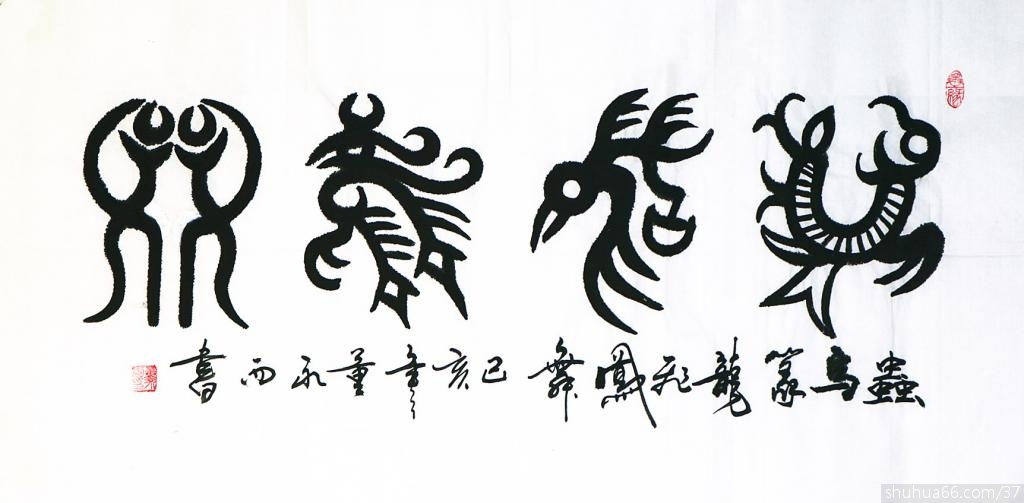 龍飛鳳舞
蟲鳥篆龍飛鳳舞己亥年董永西書
shuhua66.com/37